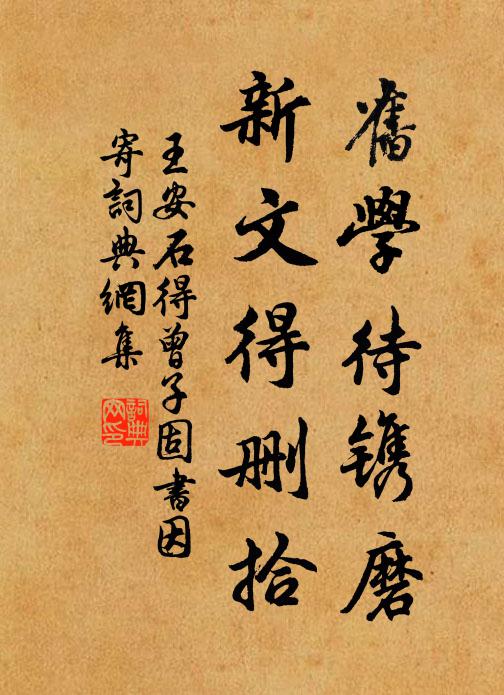 舊學待鐫磨
新文得刪拾
王安石得曾子固書因
寄詞典網集
詞典網印